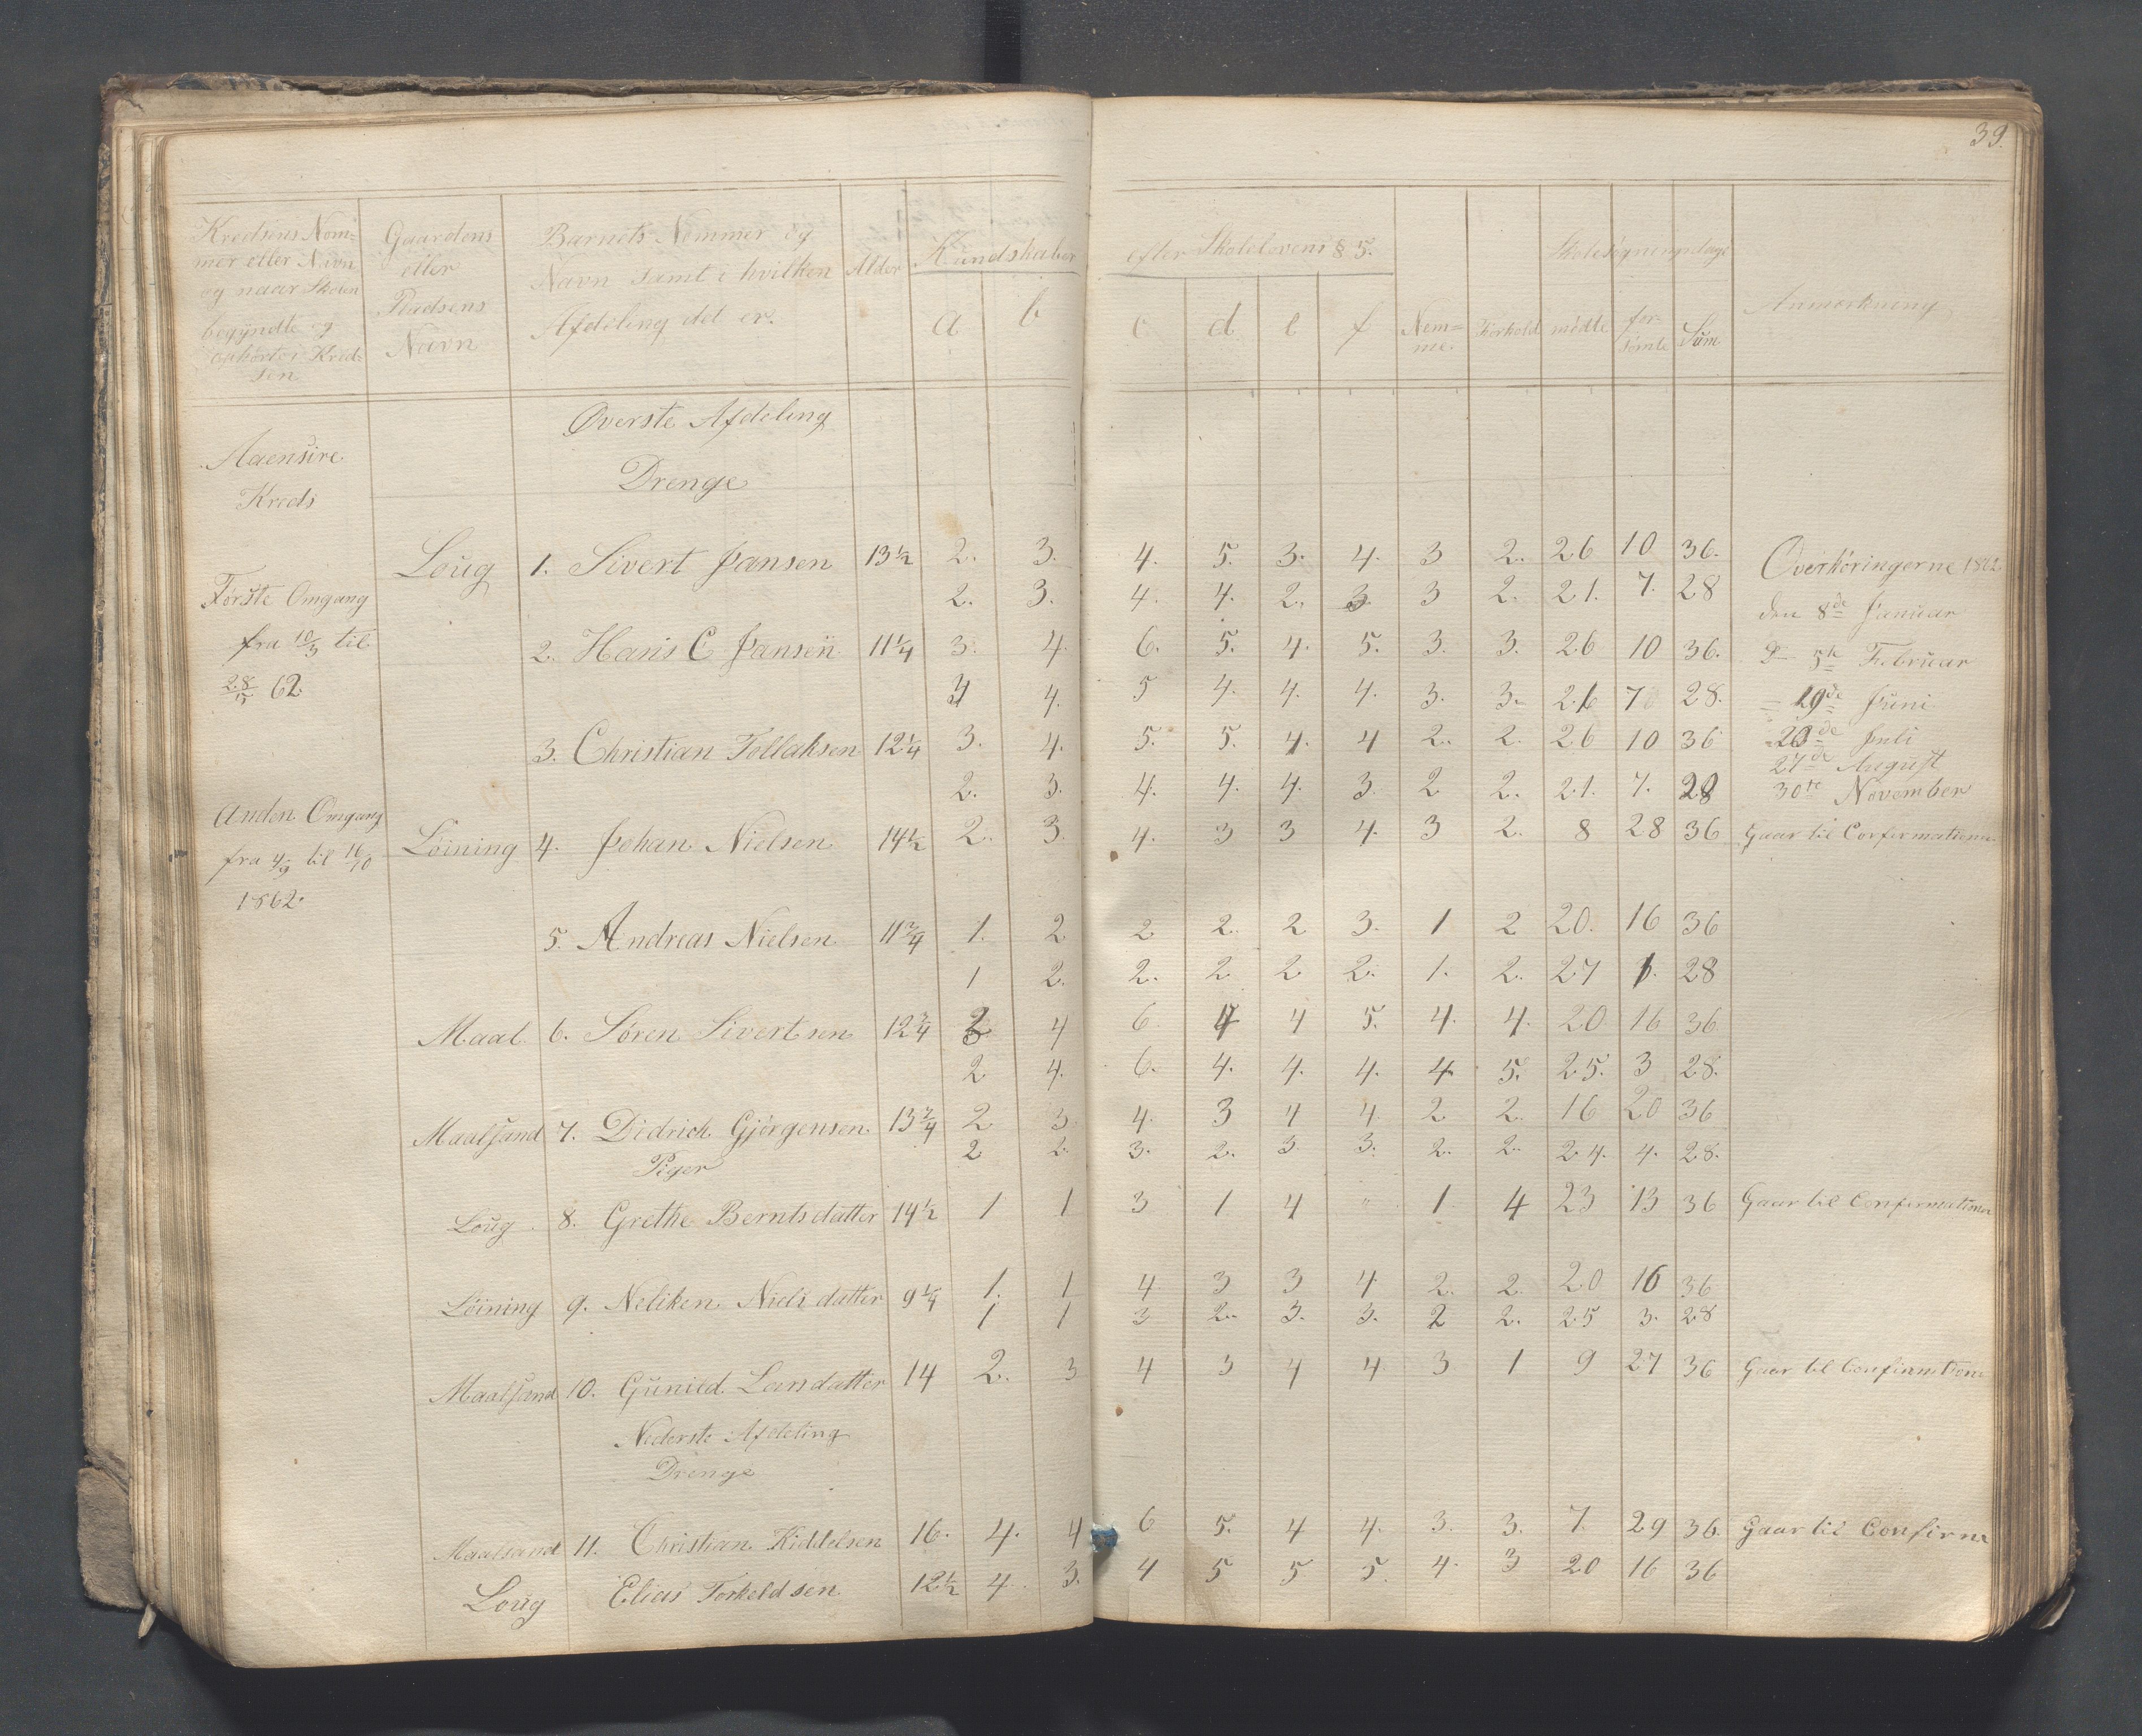 39.
Kredsens Nom=
mer eller Navn
og naar Skolen
begyndte og
ophørte i Kred=
sen
Gaardens
eller
Pladsens
Navn
Barnets Nommer og
Navn samt i hvilken
Afdeling det er.
Alder
Kundskaber
a b
efter Skoleloven's § 5.
c d e f
Nem=
me.
Forhold
Skolesøgningsdage
mødte
for-
sømte
Sum
Anmærkning
Øverste Afdeling
Aaensire
Kreds
Drenge
Loug 1. Sivert Jansen 13½ 2. 3. 4. 5. 3. 4. 3 2. 26 10 36. Overhøringerne 1862
Første Omgang 2. 3. 4. 4. 2. 3. 3 2. 21. 7. 28 den 8de Januar
fra 10/3 til 2. Hans C Jansen 11¼ 3. 4. 6. 5. 4. 5. 3. 3. 26 10 36. D 5te Februar
28/5 62. 4 4. 5 4. 4. 4. 3. 3. 21 7 28. = 19de Juni
3. Christian Tollaksen 12¼ 3. 4. 5. 5. 4. 4 2. 2. 26 10 36 23de Juli
27de August
2. 3. 4. 4. 4. 3. 2 2. 21. 7. 28 30te November
Anden Omgang
fra 4/9 til 16/10
1862.
Løining 4. Johan Nielsen 14½ 2. 3. 4. 3 3 4. 3 2. 8 28 36 Gaar til Confirmationen
5. Andreas Nielsen 11¾ 1. 2 2 2. 2 3. 1 2 20. 16 36
1 2. 2. 2 2 2. 1. 2. 27 1. 28
Maal 6. Søren Sivertsen 12¾ 3 4 6 4 4 5. 4. 4. 20 16 36
2 4. 6. 4. 4. 4. 4. 5. 25. 3 28.
Maalsand 7. Didrich Gjørgensen 13¾ 2 3 4. 3 4 4. 2 2. 16 20 36
2 2. 3. 2. 3 3. 2. 2. 24. 4. 28.
Piger
Loug 8. Grethe Berntsdatter 14½ 1 1 3 1 4 " 1 4 23 13 36 Gaar til Confirmationen
Løining 9. Neliken Nielsdatter 9¼ 1. 1 4 3 3 4 2. 2. 20 16 36
1 1 3 2. 3. 3. 2 2. 25 3. 28
Maalsand 10. Gunild Larsdatter 14 2. 3 4 3 4 4. 3 1 9 27 36 Gaar til Confirmation
Nederste Afdeling
Drenge
Maalsand 11. Christian Kiddelsen 16. 4. 4 6 5. 4 4. 3. 3. 7. 29 36. Gaar til Confirm
Loug Elias Torkeldsen 12½ 4 3. 4 5 5 5. 4. 3 20 16 36